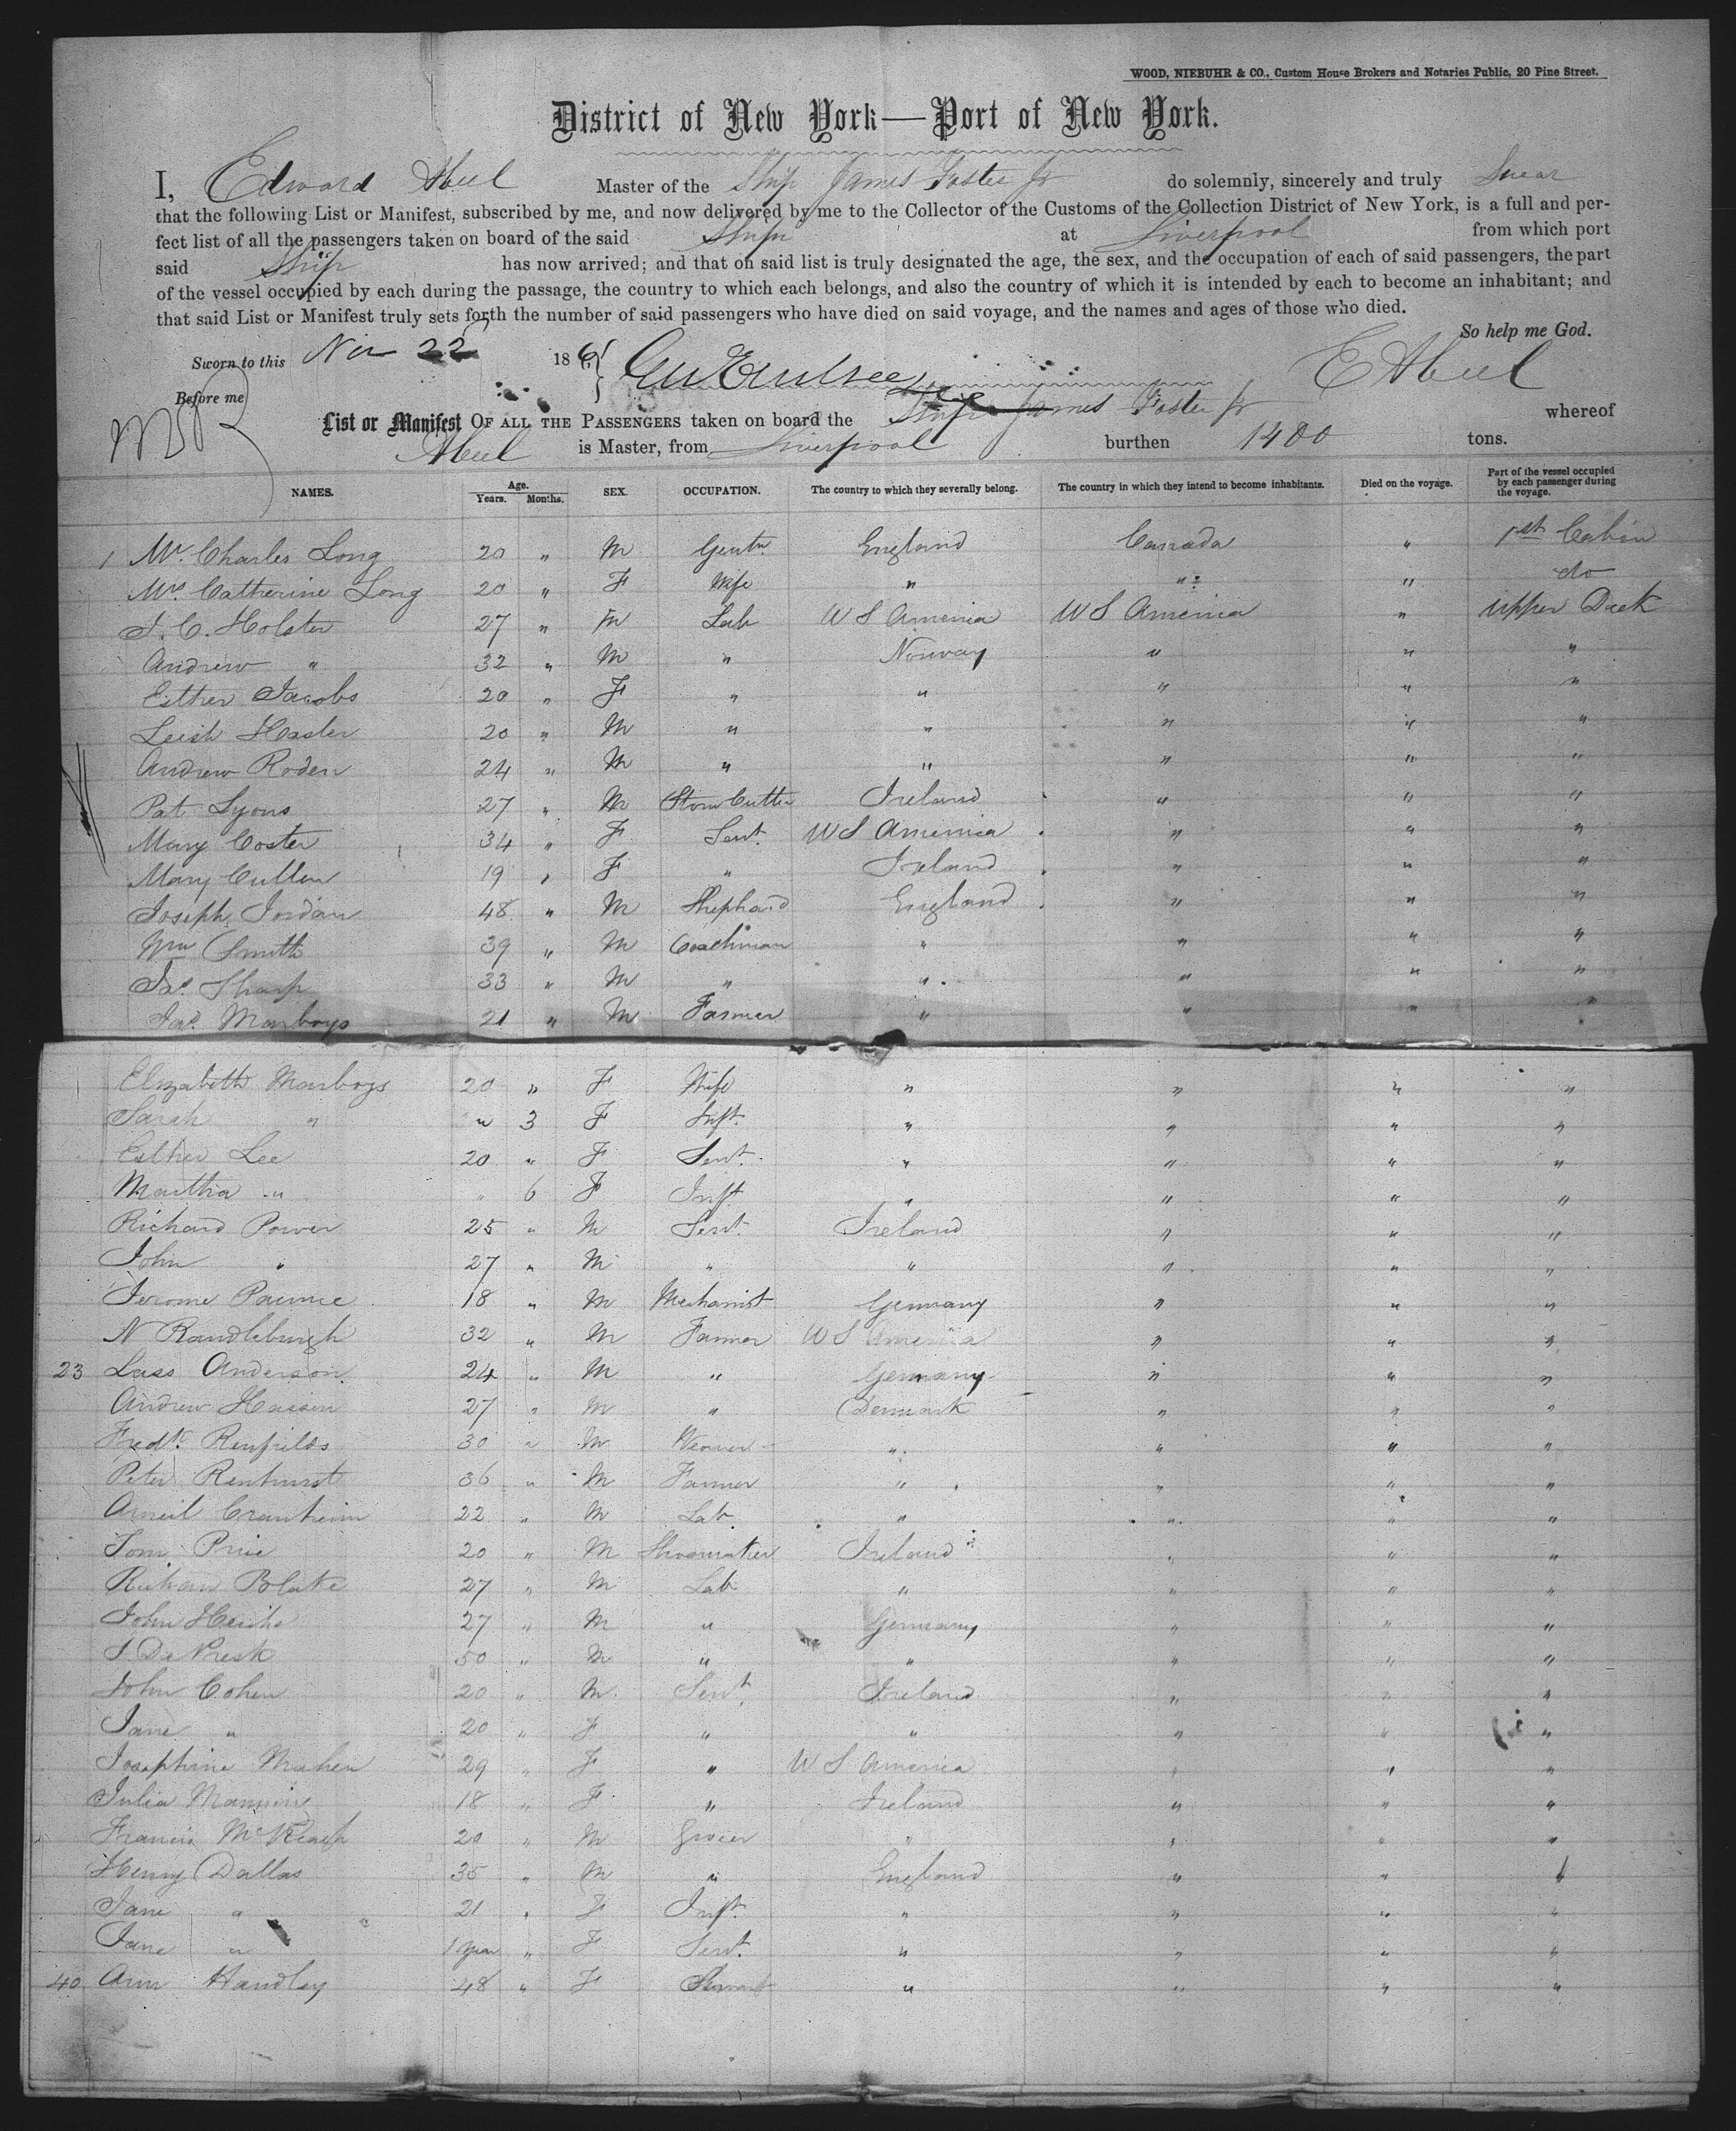 WOOD, NIEBUHR & CO., Custom House Brokers and Notaries Public, 20 Pine Street.
District of New York—Port of New York.
I, Edward Abeel Master of the Ship James Foster Jr do solemnly, sincerely and truly Swear
that the following List or Manifest, subscribed by me, and now delivered by me to the Collector of the Customs of the Collection District of New York, is a full and per-
fect list of all the passengers taken on board of the said Ship at Liverpool from which port
said Ship has now arrived; and that on said list is truly designated the age, the sex, and the occupation of each of said passengers, the part
of the vessel occupied by each during the passage, the country to which each belongs, and also the country of which it is intended by each to become an inhabitant; and
that said List or Manifest truly sets forth the number of said passengers who have died on said voyage, and the names and ages of those who died.
So help me God.
Sworn to this Nov 22 186 E Abeel
Before me
List or Manifest OF ALL THE PASSENGERS taken on board the Ship James Foster Jr whereof
Abeel is Master, from Liverpool burthen 1400 tons.
NAMES. Age. Years. Months. SEX. OCCUPATION. The country to which they severally belong. The country in which they intend to become inhabitants. Died on the voyage. Part of the vessel occupied by each passenger during the voyage.
1 Mr. Charles Long 20 " M Gentn England Canada " 1st Cabin
Mrs. Catherine Long 20 " F Wife " " " do
J. C. Holster 27 " M Lab U S America U S America " Upper Deck
Andrew " 32 " M " Norway " " "
Esther Jacobs 20 " F " " " " "
Hasler 20 " M " " " " "
Andrew Roden 24 " M " " " " "
Pat Lyons 27 " M Stone Cutter Ireland " " "
Mary Coster 34 " F Sert. U S America " " "
Mary Cullen 19 " F " Ireland " " "
Joseph Jordan 48 " M Shephard England " " "
Wm Smith 39 " M Coachman " " " "
Jas. Sharp 33 " M " " " " "
Jas. Marboys 21 " M Farmer " " " "
Elizabeth Marboys 20 " F Wife " " " "
Sarah " " 3 F Inft. " " " "
Esther Lee 20 " F Sert. " " " "
Martha " " 6 F Inft " " " "
Richard Power 25 " M Sert. Ireland " " "
John " 27 " M " " " " "
Jerome 18 " M Mechanist Germany " " "
N Randleburgh 32 " M Farmer U S America " " "
23 Lass Anderson 24 " M " Germany " " "
Andrew Hassen 27 " M " Denmark " " "
Fredk. Renfields 30 " M Weaver " " " "
Peter Renhurst 36 " M Farmer " " " "
22 " M Lab " " " "
Tom Price 20 " M Shoemaker Ireland " " "
Richard Blake 27 " M Lab " " " "
John 27 " M " Germany " " "
50 " M " " " " "
John Cohen 20 " M Sert. Ireland " " "
Jane " 20 " F " " " " "
Josephine 29 " F " U S America " " "
Julia Manning 18 " F " Ireland " " "
Francis 20 " M Grocer " " " "
Henry Dallas 35 " M " England " " "
Jane " 21 " F Inft. " " " "
Jane " 1 year " F Sert. " " " "
40 Ann Handley 48 " F Servant " " " "